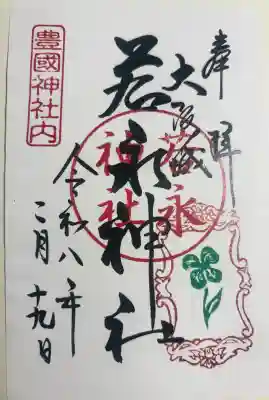 奉拝
大阪城
若永神社
若永
神社
令和八年
二月十九日
豊國神社内